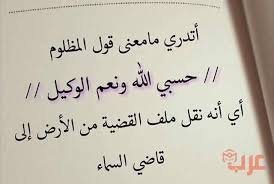 أتدري مامعنى قول المظلوم
// حسبي الله ونعم الوكيل //
أي أنه نقل ملف القضية من الأرض إلى
قاضي السماء
عرب